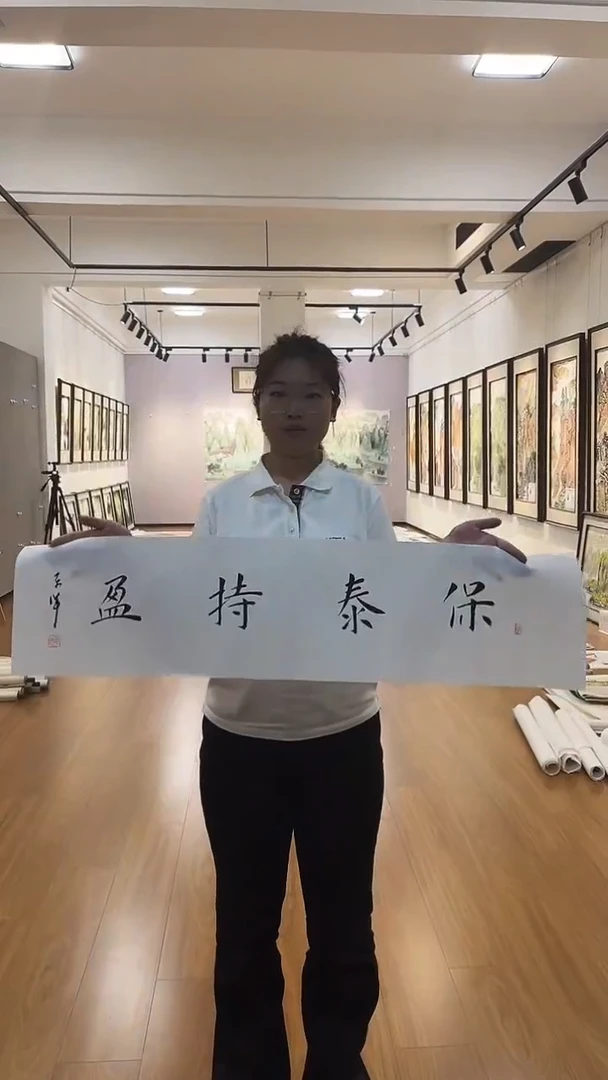 保泰持盈